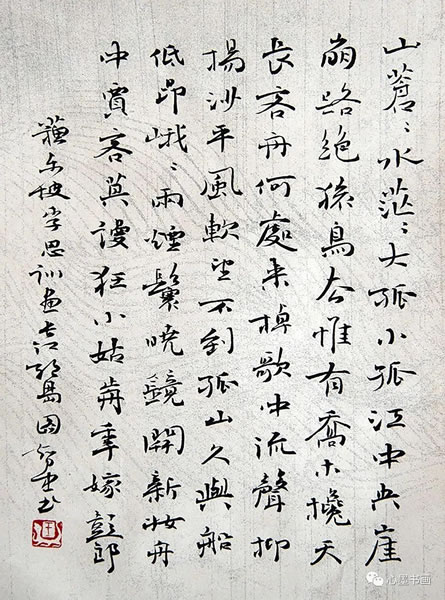 山蒼〻水茫〻大孤小孤江中央崖
崩路絕猿鳥去惟有喬木攙天
長客舟何處來棹歌中流聲抑
揚沙平風軟望不到孤山久與船
低昂峨〻兩煙鬟曉鏡開新妝舟
中賈客莫謾狂小姑前年嫁彭郎
蘇东坡李思訓畫長江絕島图
书画